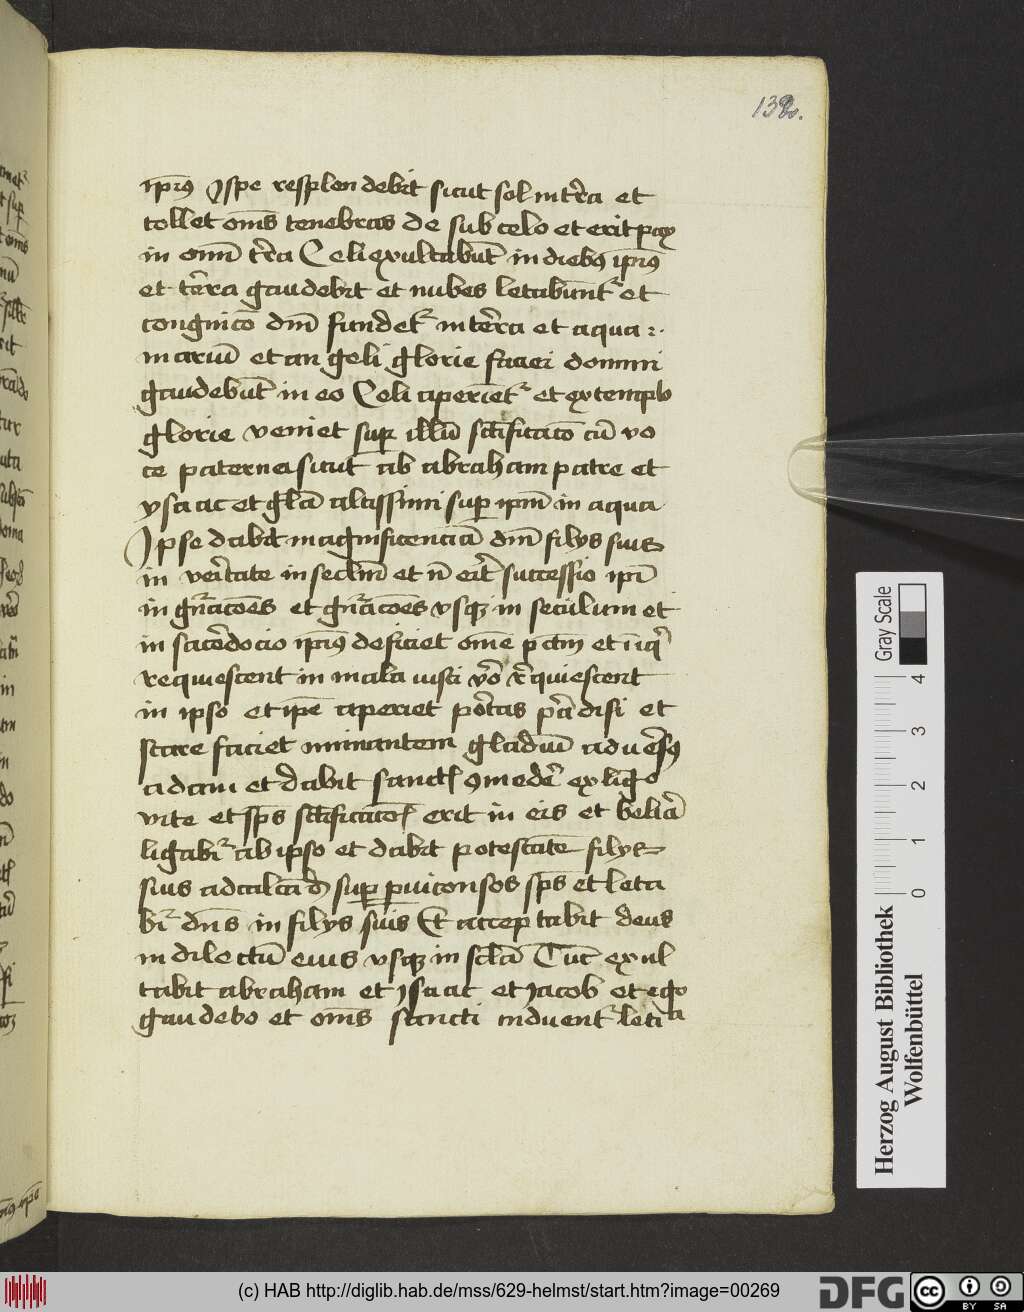 132.
ip̄ius Ipse resplendebit sicut sol in t̄ra et
tollet om̄s tenebras de sub celo et erit pax
in om̄i t̄ra Celi exultabūt in diebꝰ ip̄iꝰ
et t̄rra gaudebit et nubes letabunt᷑ et
congnico dn̄i fundet᷑ in terra et aqua :.
mariū et angeli glorie faciei domini
gaudebūt in eo Celi aperient᷑ et ex templo
glorie veniet suꝑ illū sc̄ificatō cū vo
ce paterna sicut ab abraham patre et
ysaac et gl̄ia altissimi suꝑ ip̄m in aqua
Ipse dabit magnificenciā dn̄i filys suis
in veritate in sec̄lm̄ et n̄ erit successio ip̄i
in gn̄aciōes et gn̄aciōes vsqꝫ in seculum et
in sac̄docio ip̄iꝰ deficiet om̄e pc̄tm et iniq̄
requiescent in mala iusti v̄o r̄quiescent
in ipso et ip̄e aperiet portas p̄adisi et
stare faciet minantem gladiū aduersꝰ
adam et dabit sanctis ꝯmedere ex ligo
vite et sp̄s sc̄ificatōis erit in eis et beliar
ligabit᷑ ab ipso et dabit potestatē filys
suis ad calcād suꝑ ꝑnicionsos sp̄s et leta
bit᷑ dn̄s in filys suis Et acceptabit deus
in dilectū eius vsqꝫ in sc̄la Tūc exul
tabit abraham et ysaac et Iacob et ego
gaudebo et om̄s sancti induent᷑ leticia
Gray Scale
0 1 2 3 4
Herzog August Bibliothek
Wolfenbüttel
(c) HAB http://diglib.hab.de/mss/629-helmst/start.htm?image=00269
DFG
cc BY SA